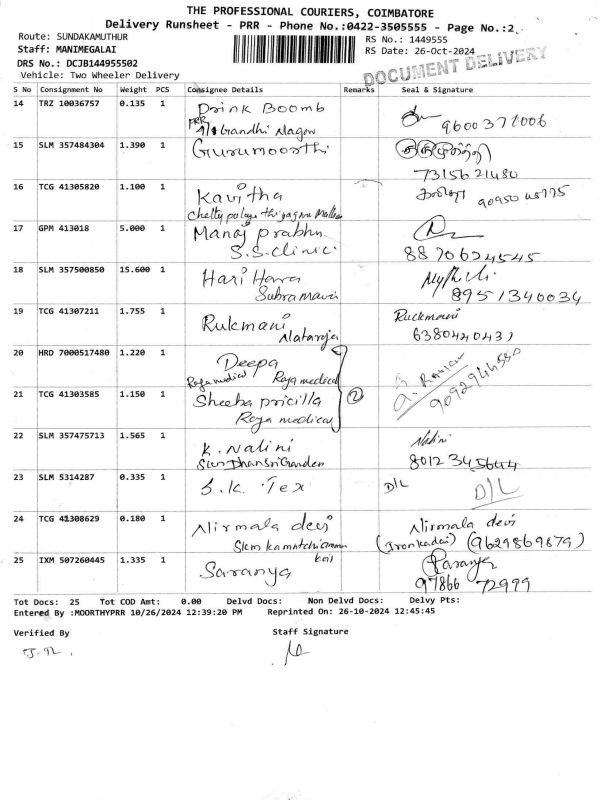 THE PROFESSIONAL COURIERS, COIMBATORE
Delivery Runsheet - PRR - Phone No.:0422-3505555 - Page No.:2
Route: SUNDAKAMUTHUR
RS No.: 1449555
Staff: MANIMEGALAI
RS Date: 26-Oct-2024
DRS No.: DCJB144955502
DOCUMENT DELIVERY
Vehicle: Two Wheeler Delivery
S No Consignment No Weight PCS Consignee Details Remarks Seal & Signature
14 TRZ 10036757 0.135 1 Drink Boomb
PRR Gandhi Nagar 9600371006
15 SLM 357484304 1.390 1 Gurumoorthi
7315621480
16 TCG 41305820 1.100 1 Kavitha
17 GPM 413018 5.000 1 Manoj prabhu
S.S. clinic 8870624545
18 SLM 357500850 15.600 1 Hari Hara
Subramani 8951340034
19 TCG 41307211 1.755 1 Rukmani Ruckmani
Nataraja
20 HRD 7000517480 1.220 1 Deepa
Raja medical Raja medical 9092944550
21 TCG 41303585 1.150 1 Sheeba pricilla 2
Raja medical
22 SLM 357475713 1.565 1 K. Nalini Nalini
8012345644
23 SLM 5314287 0.335 1 S.K. Tex D/L D/L
24 TCG 41308629 0.180 1 Nirmala devi Nirmala devi
(Ironkadai) (9629869879)
25 IXM 507260445 1.335 1 Saranya Saranya
koil
97866 72999
Tot Docs: 25 Tot COD Amt: 0.00 Delvd Docs: Non Delvd Docs: Delvy Pts:
Entered By :MOORTHYPRR 10/26/2024 12:39:20 PM Reprinted On: 26-10-2024 12:45:45
Verified By Staff Signature